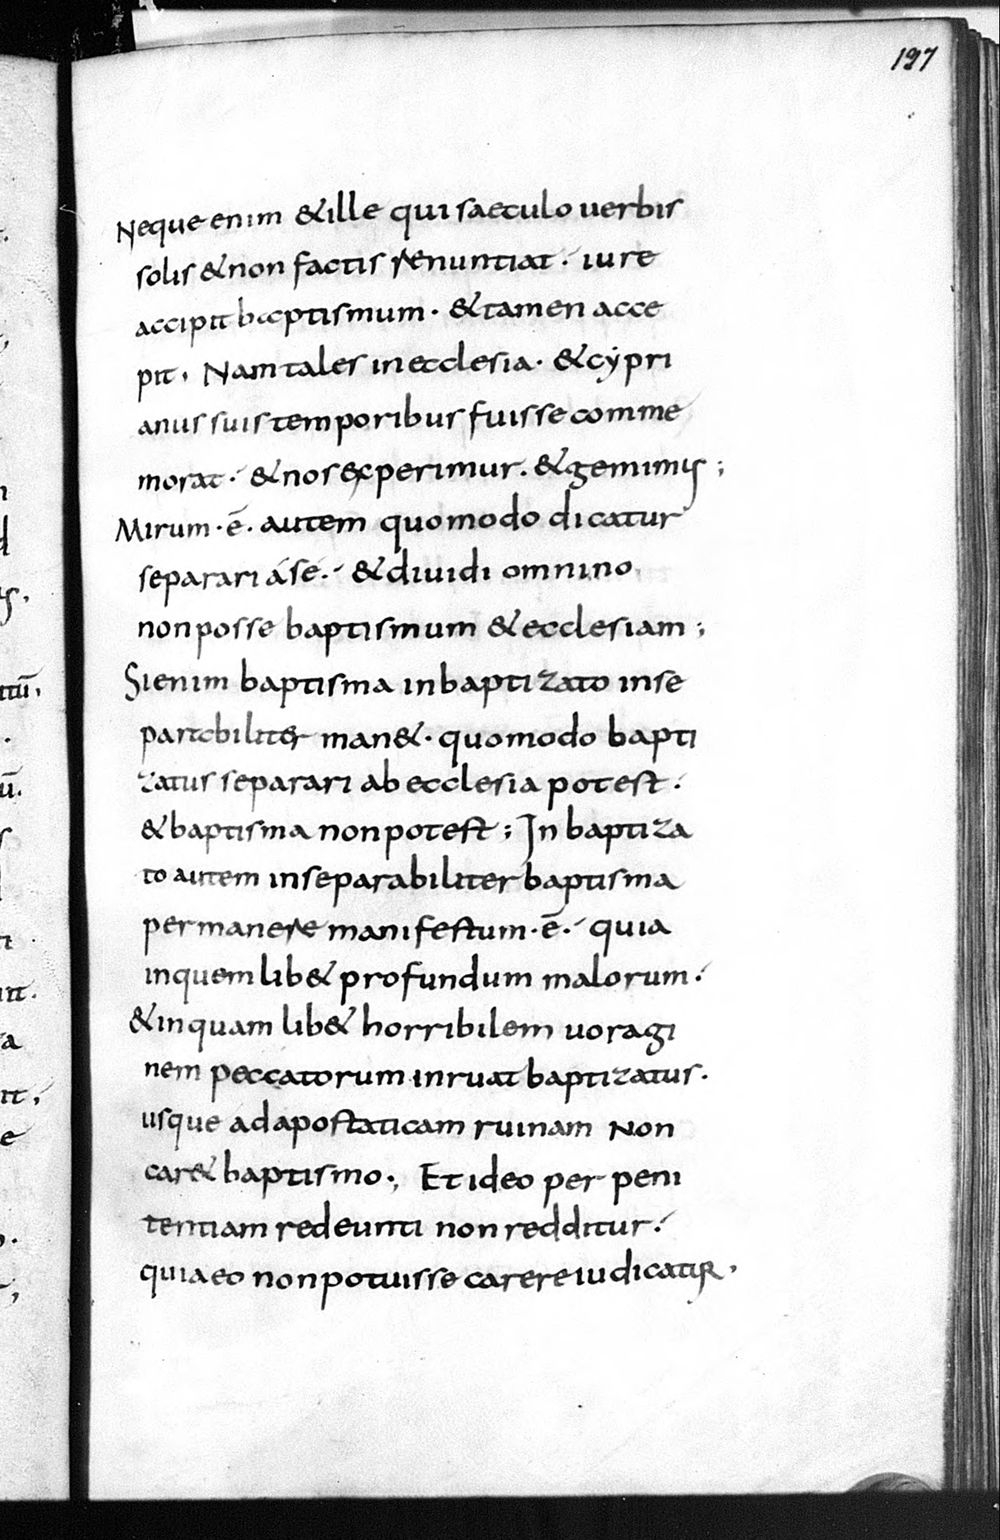 127
Neque enim & ille qui saeculo uerbis
solis & non factis renuntiat · iure
accipit baptismum · & tamen acce
pit · Nam tales in ecclesia · & cypri
anus suis temporibus fuisse comme
morat · & nos experimur · & gemimus ;
Mirum · ē · autem quomodo dicatur
separari á se · & diuidi omnino
non posse baptismum & ecclesiam ;
Si enim baptisma in baptizato inse
parabiliter man& · quomodo bapti
zatus separari ab ecclesia potest ·
& baptisma non potest ; In baptiza
to autem inseparabiliter baptisma
permanere manifestum · ē · quia
in quem lib& profundum malorum ·
& in quam lib& horribilem uoragi
nem peccatorum inruat baptizatus ·
usque ad apostaticam ruinam Non
car& baptismo ·, Et ideo per peni
tentiam redeunti non redditur ·
quia eo non potuisse carere iudicatur ·